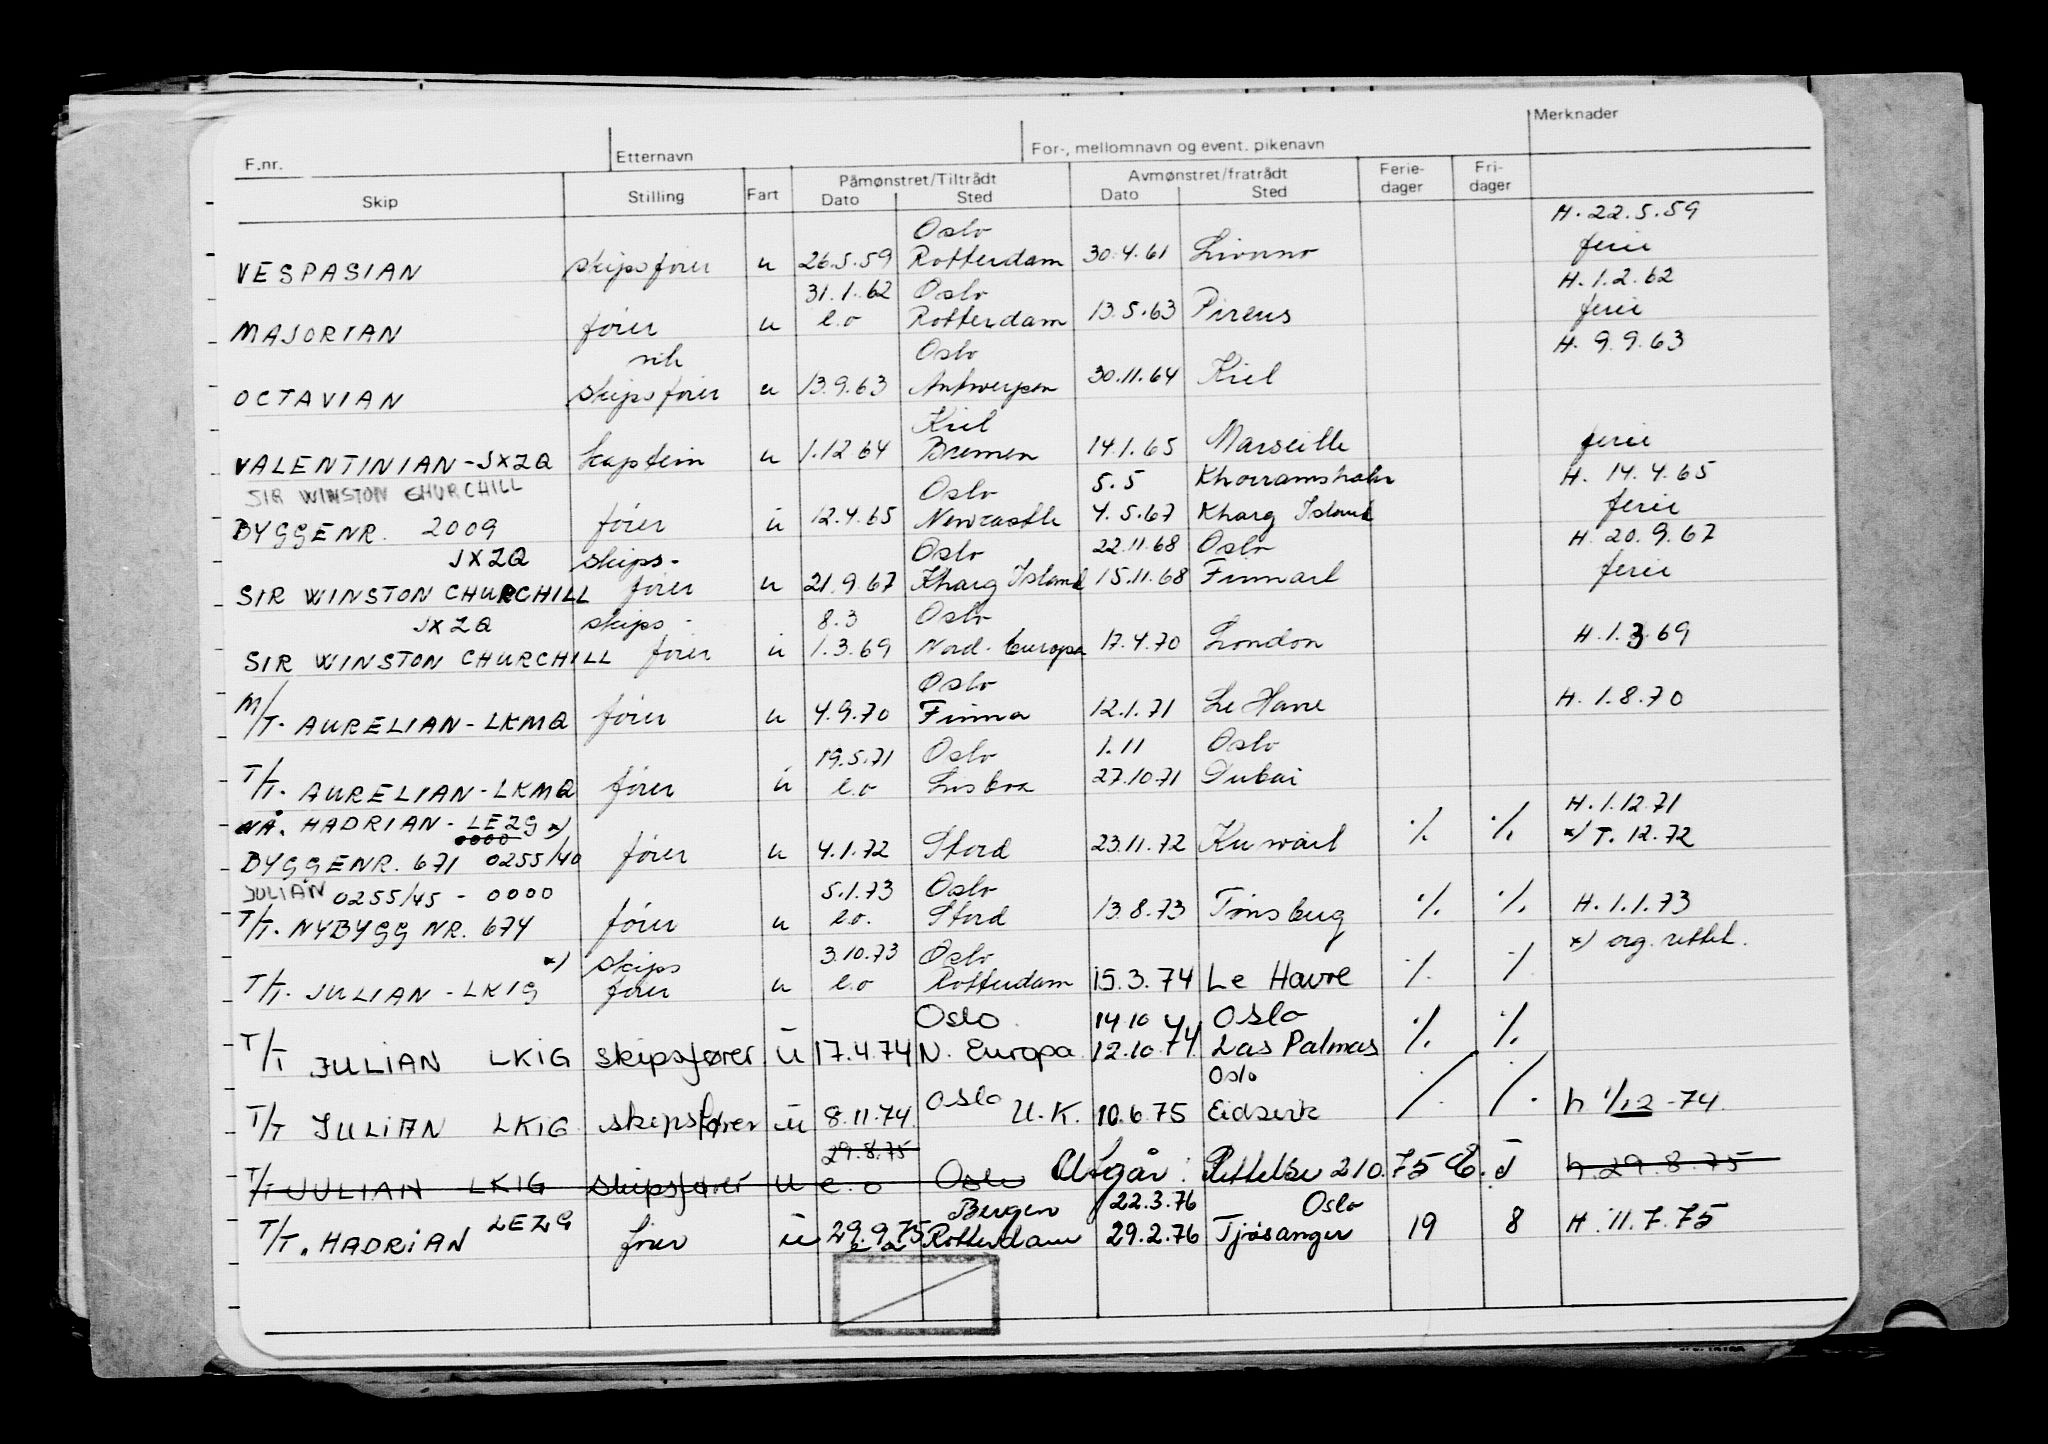 F.nr. Etternavn For-, mellomnavn og event. pikenavn Merknader
Skip Stilling Fart Påmønstret/Tiltrådt Dato Sted Avmønstret/fratrådt Dato Sted Ferie-dager Fri-dager
Oslo H. 22.5.59
VESPASIAN skipsfører u 26.5.59 Rotterdam 30.4.61 Livorno ferie
31.1.62 Oslo H. 1.2.62
MAJORIAN fører u e.o Rotterdam 13.5.63 Pireus ferie
Oslo H. 9.9.63
OCTAVIAN skipsfører u 13.9.63 Antwerpen 30.11.64 Kiel
Kiel
VALENTINIAN - JXZQ kaptein u 1.12.64 Bremen 14.1.65 Marseille ferie
SIR WINSTON CHURCHILL Oslo 5.5 H. 14.4.65
BYGGENR. 2009 fører u 12.4.65 Newcastle 4.5.67 Kharg Island ferie
JXZQ skips- Oslo 22.11.68 Oslo H. 20.9.67
SIR WINSTON CHURCHILL fører u 21.9.67 Kharg Island 15.11.68 Finnart ferie
JXZQ skips- 8.3 Oslo
SIR WINSTON CHURCHILL fører u 1.3.69 Nord-Europa 17.4.70 London H. 1.3.69
Oslo
M/T. AURELIAN - LKMQ fører u 4.9.70 Finna 12.1.71 Le Havre H. 1.8.70
19.5.71 Oslo 1.11 Oslo
T/T. AURELIAN - LKMQ fører u e.o Lisboa 27.10.71 Dubai
NÅ. HADRIAN - LEZG x) ./. ./. H. 1.12.71
0000
BYGGENR. 671 0255/40 fører u 4.1.72 Stord 23.11.72 Kuwait x) T. 12.72
JULIAN 0255/45 - 0000 5.1.73 Oslo
T/T. NYBYGG NR. 674 fører u e.o. Stord 13.8.73 Tønsberg ./. ./. H. 1.1.73
x) skips 3.10.73 Oslo x) org. rettet.
T/T. JULIAN - LKIG fører u e.o Rotterdam 15.3.74 Le Havre ./. ./.
Oslo 14.10 Oslo
T/T JULIAN LKIG skipsfører u 17.4.74 N. Europa 12.10.74 Las Palmas ./. ./.
Oslo Oslo
T/T JULIAN LKIG skipsfører u 8.11.74 U.K. 10.6.75 ./. ./. h 1/12-74
29.8.75
T/T JULIAN LKIG skipsfører u e.o Oslo Utgår: Rettelse 210.75 h. 29.8.75
Bergen 22.3.76 Oslo
T/T. HADRIAN LEZG fører u 29.9.75 Rotterdam 29.2.76 Tjøsanger 19 8 H. 11.7.75